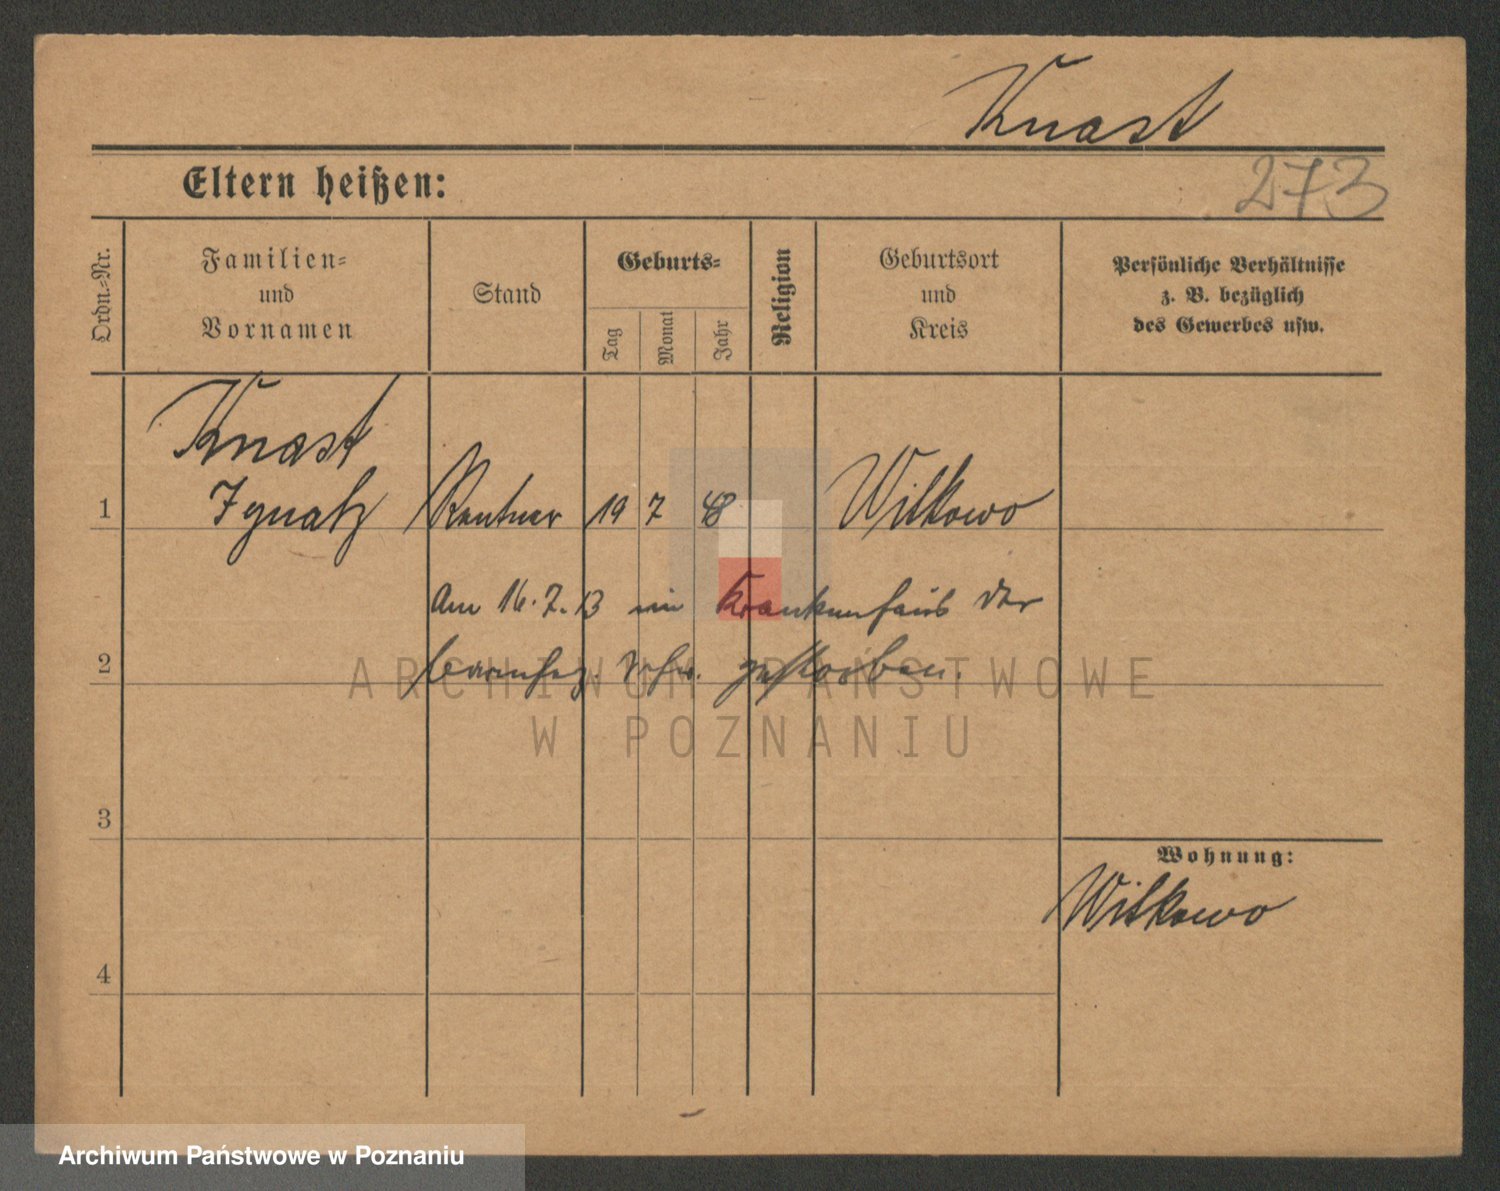 Knast
273
Eltern heißen:
Ordn.-Nr.
Familien-
und
Vornamen
Stand
Geburts-
Tag
Monat
Jahr
Religion
Geburtsort
und
Kreis
Persönliche Verhältnisse
z. B. bezüglich
des Gewerbes usw.
Knast
1 Ignatz Rentner 19 7 48 Witkowo
Am 16.7.13 im Krankenhaus der
2 barmhez. Schw. gestorben.
ARCHIWUM PAŃSTWOWE
W POZNANIU
3
Wohnung:
Witkowo
4
Archiwum Państwowe w Poznaniu